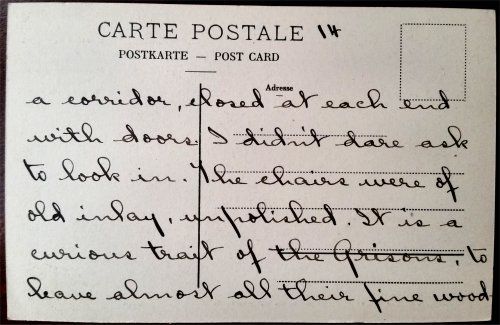 CARTE POSTALE 14
POSTKARTE — POST CARD
Adresse
a corridor, closed at each end
with doors. I didn't dare ask
to look in. The chairs were of
old inlay, unpolished. It is a
curious trait of the Grisons, to
leave almost all their fine wood